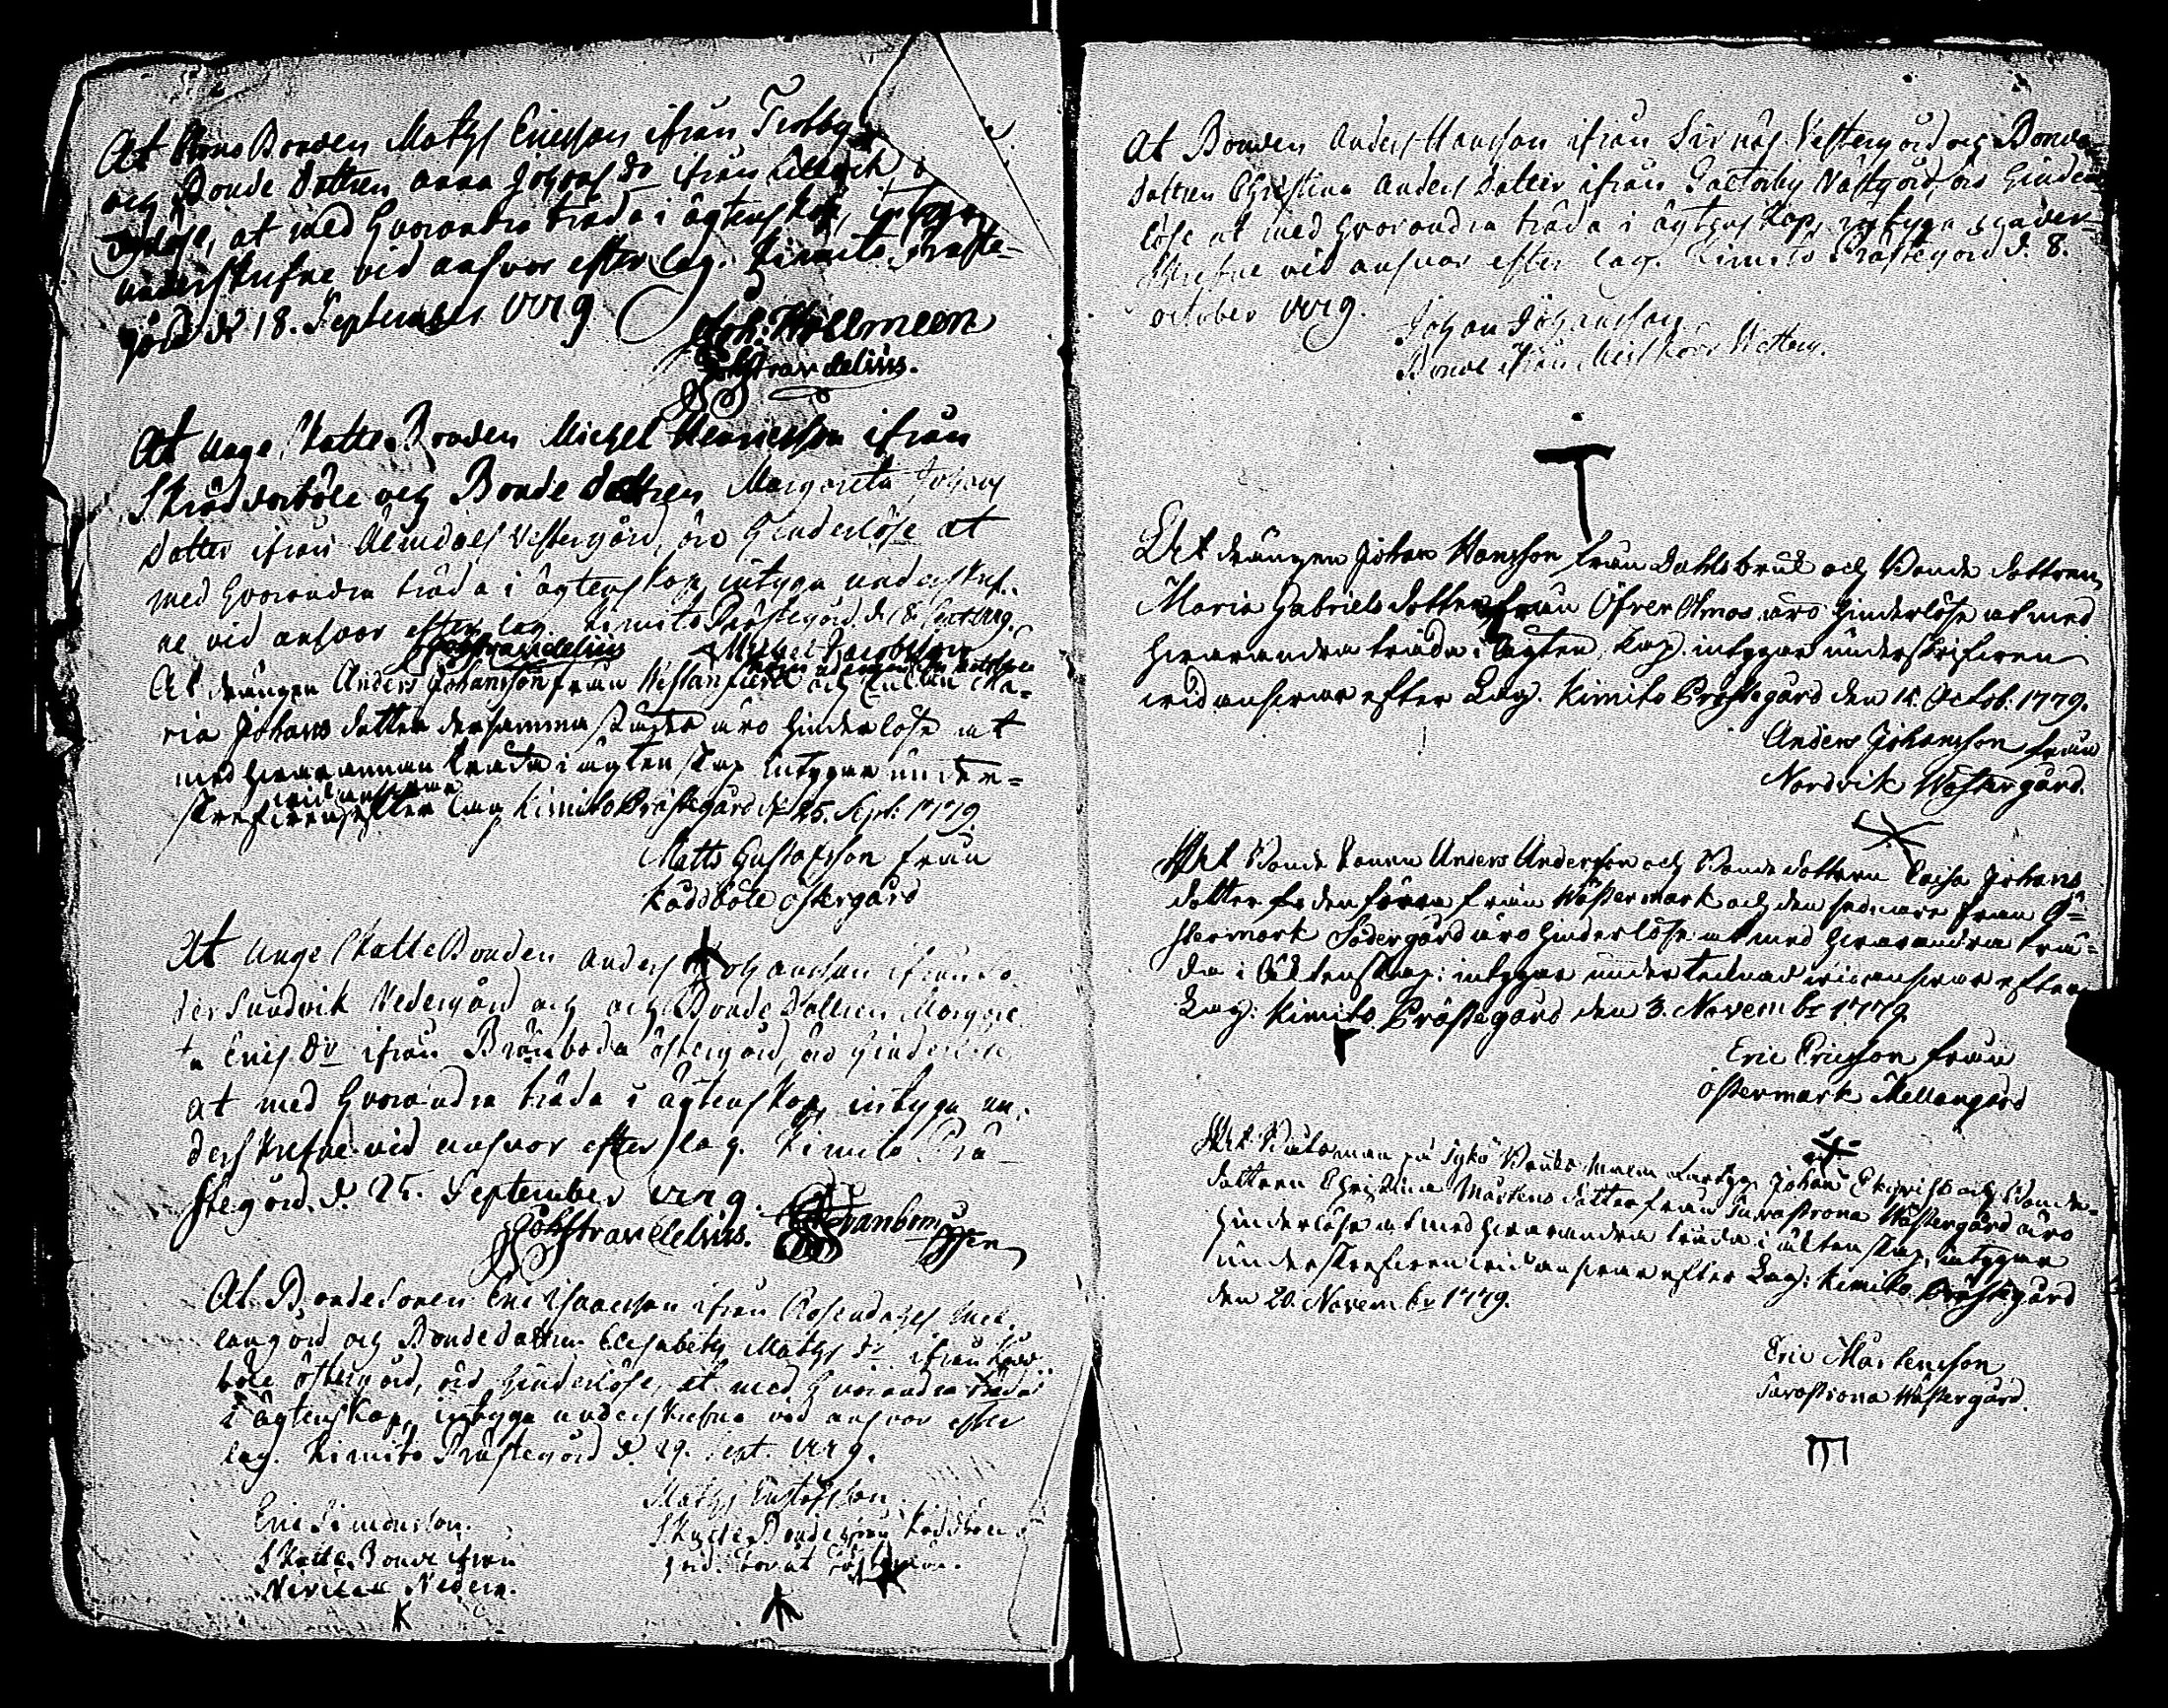 At Krono Bonden Matzs Ericsson ifrån Troby
och Bonde dottren Anna Johans dr ifrån
löse, at med hvarandra träda i ägtenskap, intyga
underskrefne vid ansvar efter lag. Kimito Präste-
gård d. 18. September 1779
Joh: Hollmeen
Strandelius.
At unge Skatte Bonden Michel Henricsson ifrån
Skrädderböle och Bonde dottren Margareta Johans
dotter ifrån Älmdals Vestergård, äro hinderlöse at
med hvarandra träda i ägtenskap, intyga underskref-
ne vid ansvar efter lag. Kimito Prästegård d. 18. Sept. 1779.
Strandelius Michel Jacobsson
At drängen Anders Johansson från Westanfierd och Enkan Ma-
ria Johans dotter dersammastädes äro hinderlöse at
med hvarannan träda i ägtenskap intygar under-
vid answar
skrefwen efter lag Kimito Prästegård d. 25. Sept. 1779.
Matts Gustafsson från
Kådböle östergård
At unge Skatte Bonden Anders Johansson ifrån
der Sundvik Nedergård och och Bonde Dottren Margare
ta Erics dr ifrån Brånboda östergård, äro hinderlöse
at med hvarandra träda i ägtenskap, intyga un-
derskrefne vid ansvar efter lag. Kimito Prä-
stegård. d. 25. September 1779.
Strandelius.
At Bondesonen Eric Isaacsson ifrån Rosendahls Mel-
langård och Bondedottren Elisabeth Matzs dr ifrån Kådd-
böle östergård, äro hinderlöse, at med hvarandra träda
i ägtenskap, intyga underskrefne vid ansvar efter
lag. Kimito Prästegård d. 29. Sept. 1779.
Eric Simonsson. Matzs Gustafsson
Skatte Bonde ifrån Skatte Bonde ifrån Kåddböle
Nederg.
At Bonden Anders Hansson ifrån Sirnäs Vestergård och Bonde
dottren Christina Anders dotter ifrån Galtarby Västgård, äro hinder-
löse at med hvarandra träda i ägtenskap, intyga under-
skrefne vid ansvar efter lag. Kimito Prästegård d. 8.
october 1779.
Johan Johansson
Bonde ifrån Vesterg.
At drängen Johan Hansson från Dahlsbruk och Bonde dottren
Maria Gabriels dotter från Öfver Ölmos äro hinderlöse at med
hwarandra träda i ägtenskap, intygar underskrefwen
wid answar efter Lag. Kimito Prästegård den 15. Octob: 1779.
Anders Johansson från
Nordvik Wästergård.
At Bonde Sonen Anders Andersson och Bonde dottren Caisa Johans
dotter den förra från Wästermark och den sednare från Ö-
stermark Södergård äro hinderlöse at med hwarandra trä-
da i äktenskap: intygar undertecknad wid answar efter
Lag: Kimito Prästegård den 3. Novembr 1779.
Eric Ericsson från
östermark Mellangård
At Båtsman på Sykö Johan Ekqvist och Bonde-
dottren Christina Mårtens dotter från Wästergård äro
hinderlöse at med hwarandra träda i äktenskap, intygar
underskrefwen wid answar efter Lag: Kimito Prästegård
den 20. Novembr 1779.
Eric Mårtensson
Wästergård.